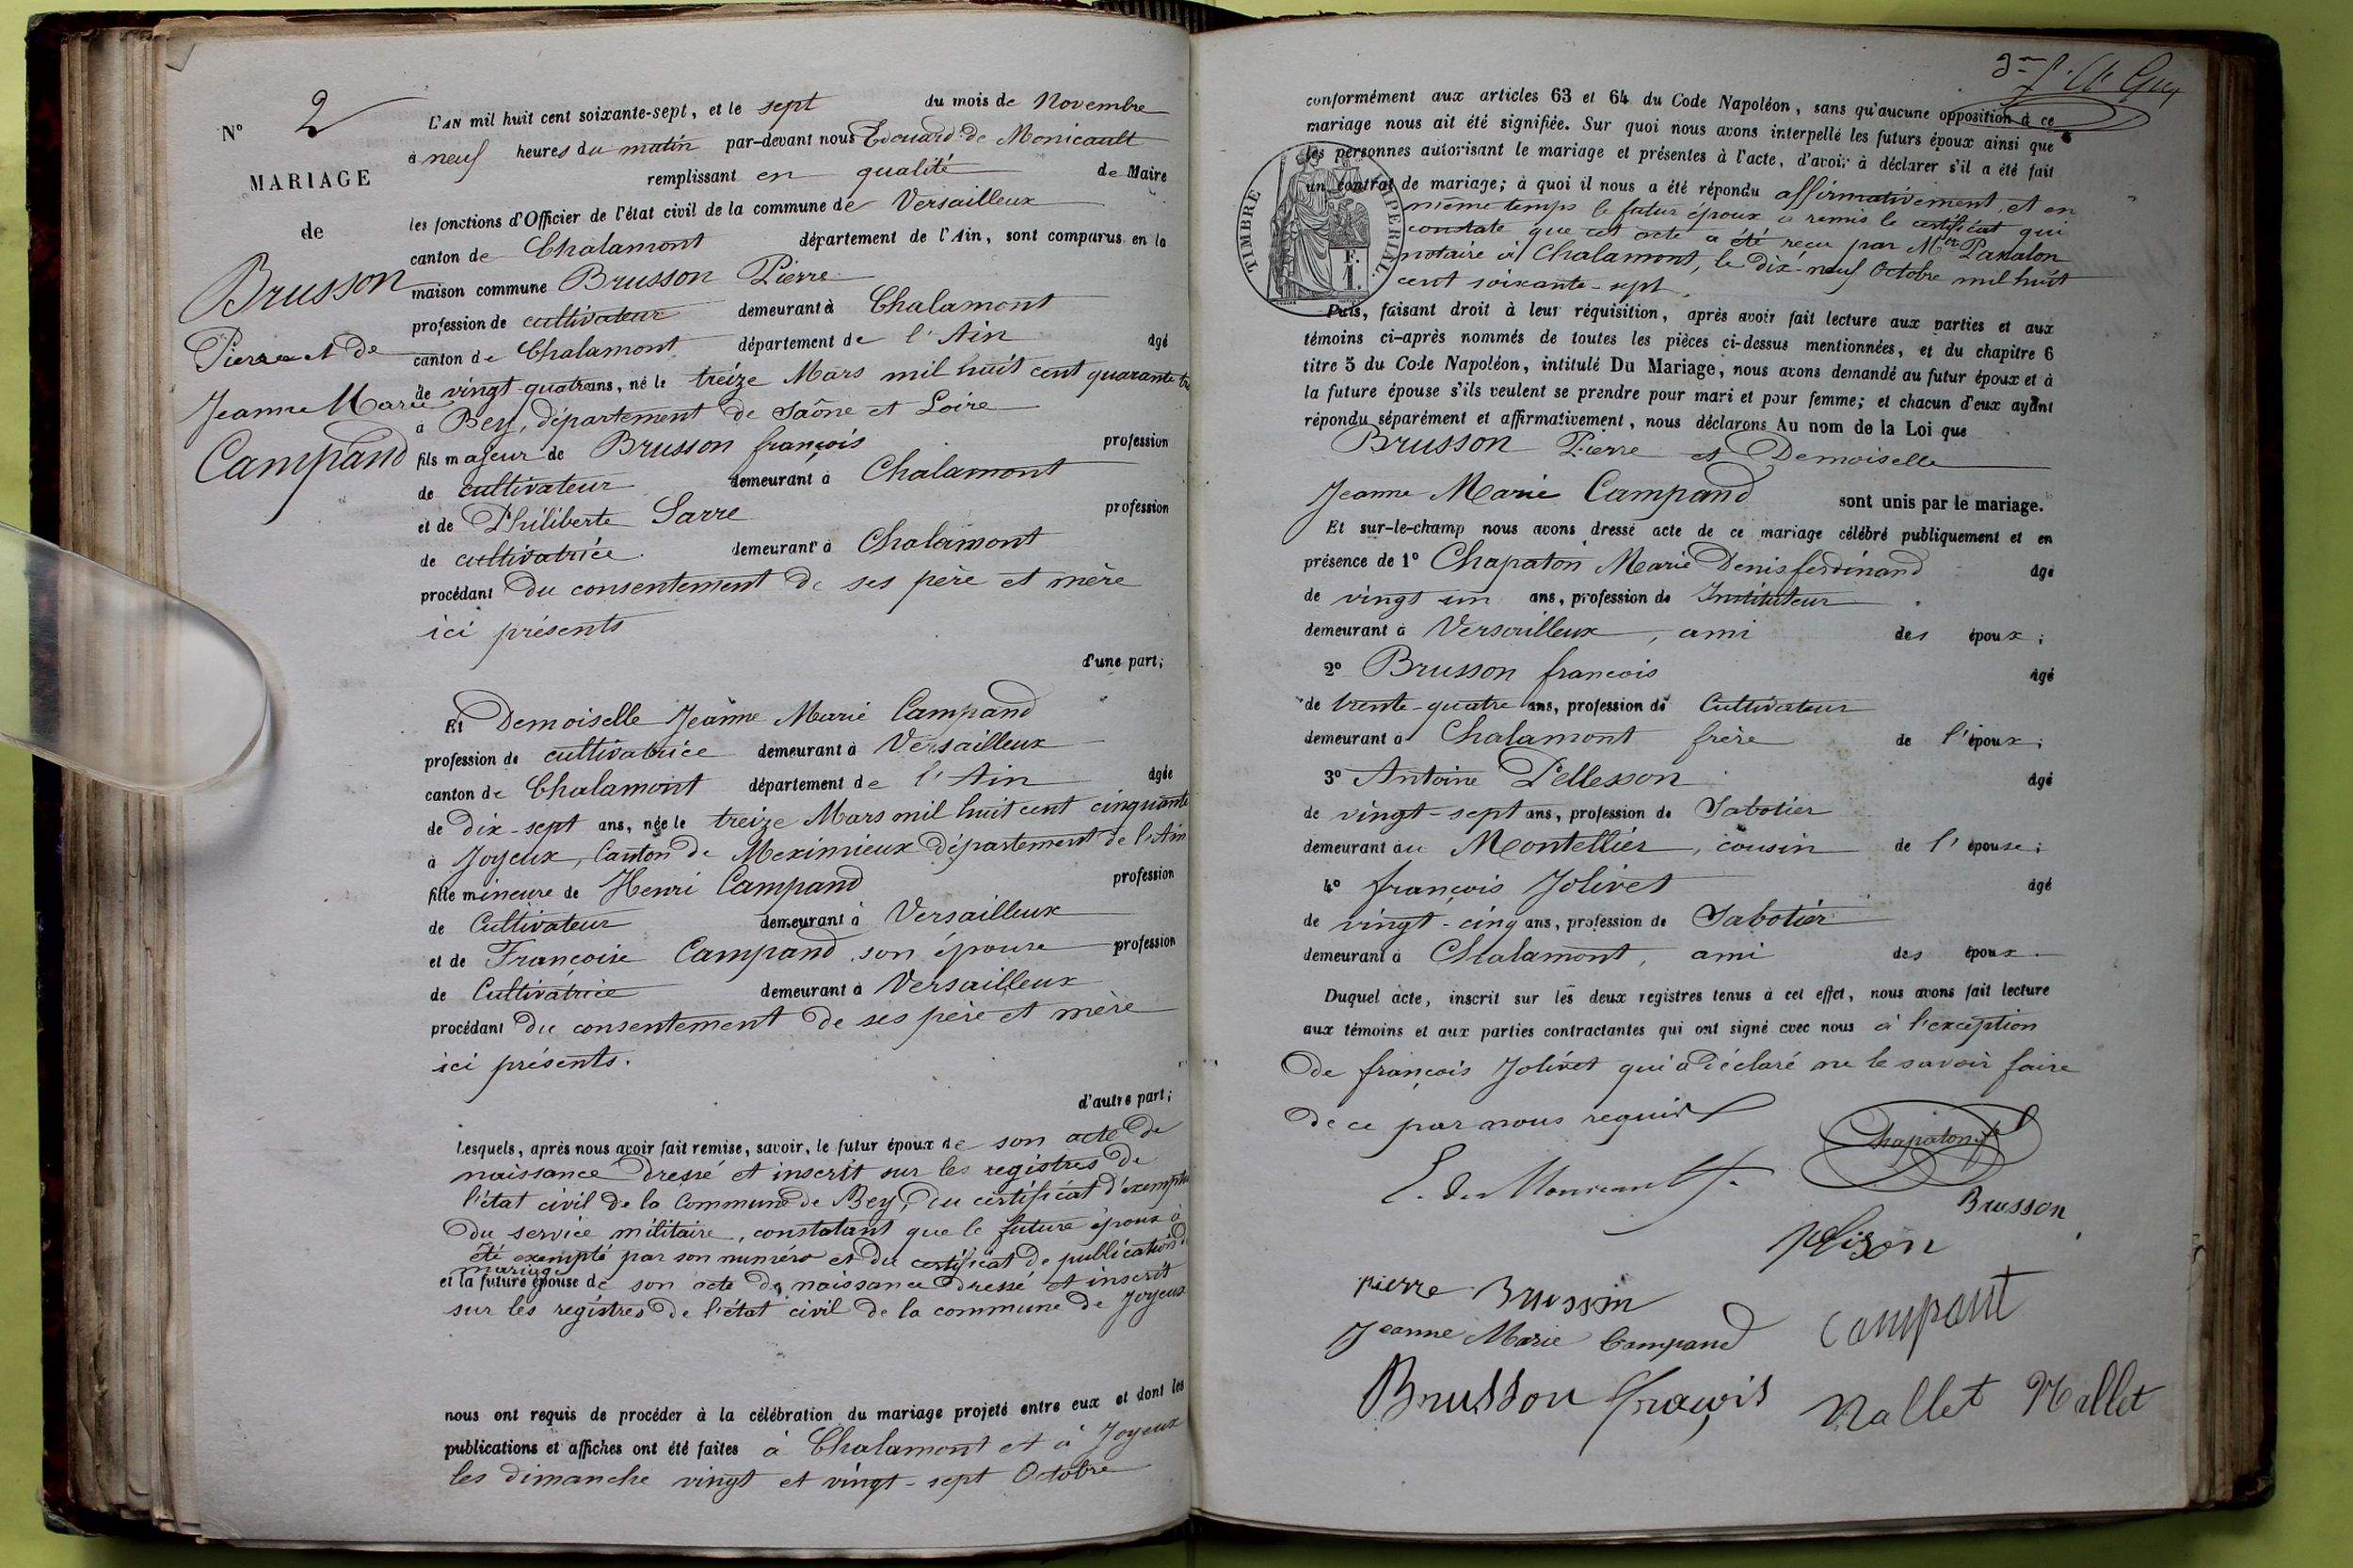 N° 2
MARIAGE
de
Brusson
Pierre et de
Jeanne Marie
Campand
L'AN mil huit cent soixante-sept, et le sept du mois de Novembre
à neuf heures du matin par-devant nous Edouard de Monicault
remplissant en qualité de Maire
les fonctions d'Officier de l'état civil de la commune de Versailleux
canton de Chalamont département de l'Ain, sont comparus en la
maison commune Brusson Pierre
profession de cultivateur demeurant à Chalamont
canton de Chalamont département de l'Ain âgé
de vingt-quatre ans, né le treize Mars mil huit cent quarante
à Bey, département de Saône et Loire
fils majeur de Brusson françois profession
de cultivateur demeurant à Chalamont
et de Philiberte Sarre profession
de cultivatrice demeurant à Chalamont
procédant du consentement de ses père et mère
ici présents
d'une part;
Et Demoiselle Jeanne Marie Campand
profession de cultivatrice demeurant à Versailleux
canton de Chalamont département de l'Ain âgée
de dix-sept ans, née le treize Mars mil huit cent cinquante
à Joyeux, Canton de Meximieux département de l'Ain
fille mineure de Henri Campand profession
de Cultivateur demeurant à Versailleux
et de Françoise Campand son épouse profession
de Cultivatrice demeurant à Versailleux
procédant du consentement de ses père et mère
ici présents.
d'autre part;
Lesquels, après nous avoir fait remise, savoir, le futur époux de son acte de
naissance dressé et inscrit sur les registres de
l'état civil de la Commune de Bey, du certificat d'exempt
du service militaire, constatant que le future époux à
été exempté par son numéro et du certificat de publication de
mariage
et la future épouse de son acte de naissance dressé et inscrit
sur les registres de l'état civil de la commune de Joyeux
nous ont requis de procéder à la célébration du mariage projeté entre eux et dont les
publications et affiches ont été faites à Chalamont et à Joyeux
les dimanche vingt et vingt-sept Octobre
conformément aux articles 63 et 64 du Code Napoléon, sans qu'aucune opposition à ce
mariage nous ait été signifiée. Sur quoi nous avons interpellé les futurs époux ainsi que
les personnes autorisant le mariage et présentes à l'acte, d'avoir à déclarer s'il a été fait
un contrat de mariage; à quoi il nous a été répondu affirmativement, et en
même temps le futur époux a remis le certificat qui
constate que cet acte a été reçu par Mtre Panalon
notaire à Chalamont, le dix-neuf Octobre mil huit
cent soixante-sept.
TIMBRE IMPERIAL.
F.
1.
Puis, faisant droit à leur réquisition, après avoir fait lecture aux parties et aux
témoins ci-après nommés de toutes les pièces ci-dessus mentionnées, et du chapitre 6
titre 5 du Code Napoléon, intitulé Du Mariage, nous avons demandé au futur époux et à
la future épouse s'ils veulent se prendre pour mari et pour femme; et chacun d'eux ayant
répondu séparément et affirmativement, nous déclarons Au nom de la Loi que
Brusson Pierre et Demoiselle
Jeanne Marie Campand sont unis par le mariage.
Et sur-le-champ nous avons dressé acte de ce mariage célébré publiquement et en
présence de 1° Chapaton Marie Denis ferdinand âgé
de vingt un ans, profession de Instituteur
demeurant à Versailleux, ami des époux;
2° Brusson francois âgé
de trente-quatre ans, profession de Cultivateur
demeurant à Chalamont frère de l'époux;
3° Antoine Pellesson âgé
de vingt-sept ans, profession de Sabotier
demeurant au Montellier, cousin de l'épouse;
4° françois Jolivet âgé
de vingt-cinq ans, profession de Sabotier
demeurant à Chalamont, ami des époux.
Duquel acte, inscrit sur les deux registres tenus à cet effet, nous avons fait lecture
aux témoins et aux parties contractantes qui ont signé avec nous à l'exception
de françois Jolivet qui a déclaré ne le savoir faire
de ce par nous requis
Chapaton
E. de Monicault
Brusson
plison
pierre Brusson
Jeanne Marie Campand campant
Brusson françois Nallet Nallet